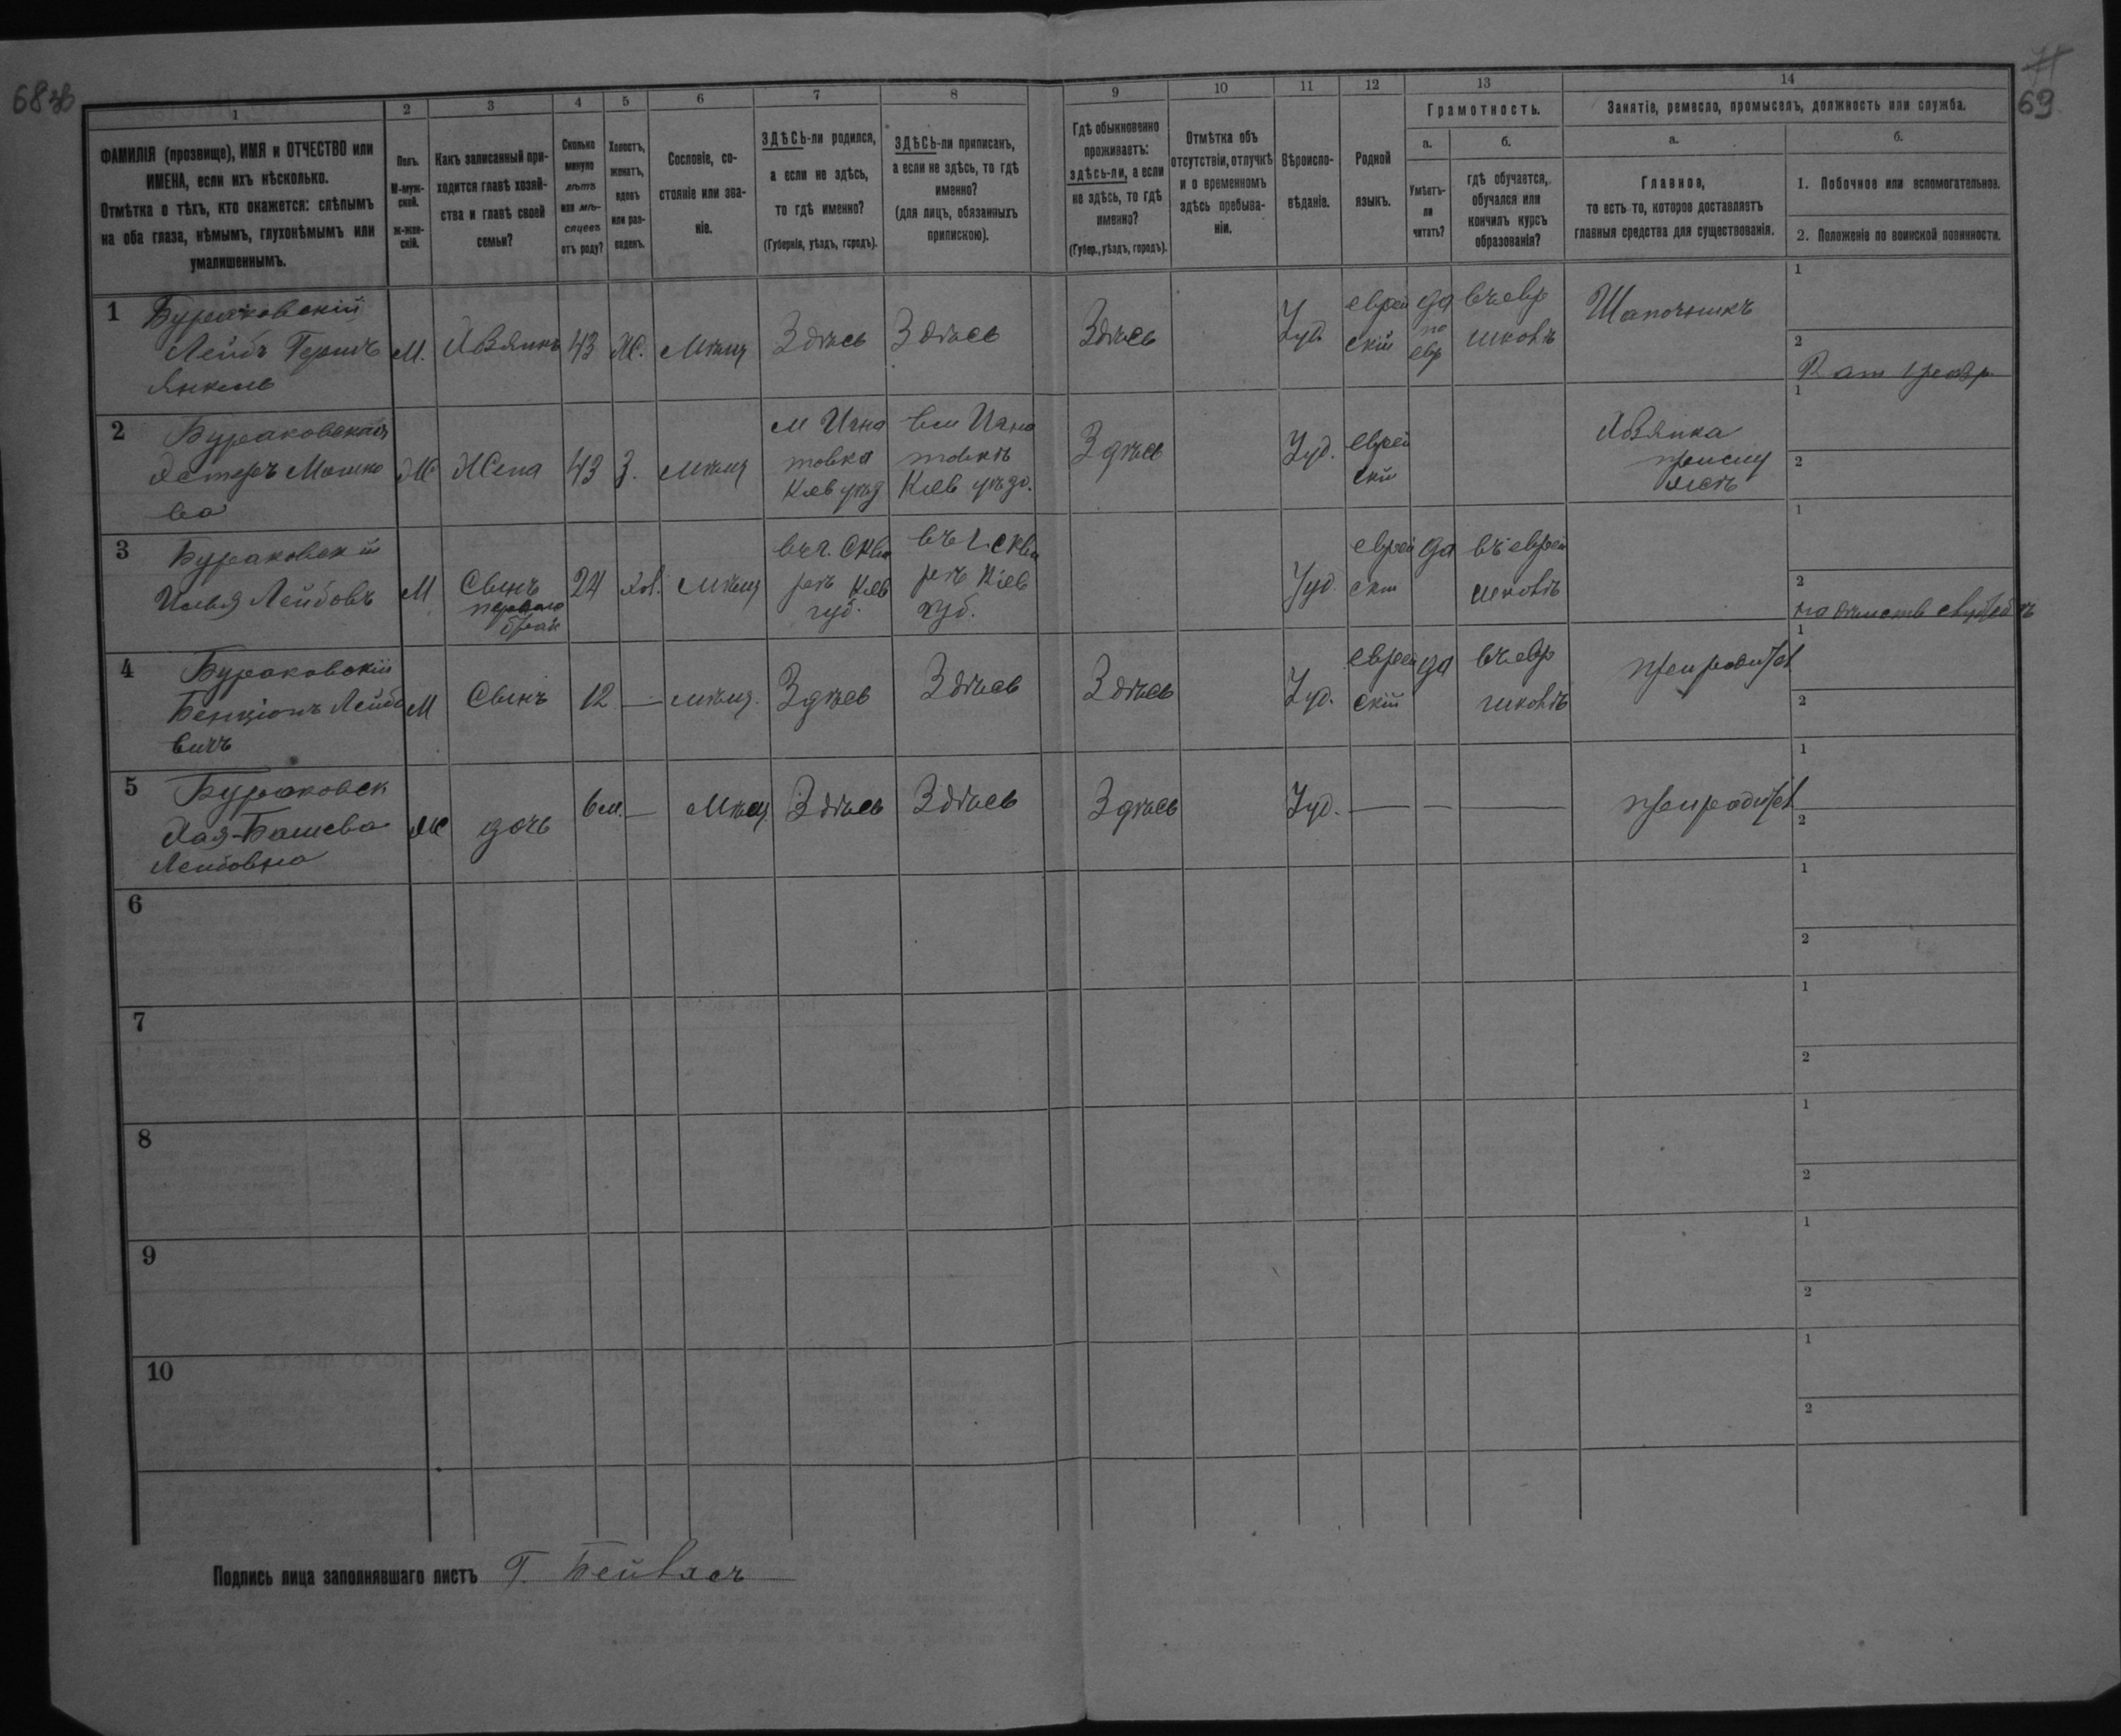 68 зв
69
1 2 3 4 5 6 7 8 9 10 11 12 13 14
ФАМИЛІЯ (прозвище), ИМЯ и ОТЧЕСТВО или
ИМЕНА, если ихъ нѣсколько.
Отмѣтка о тѣхъ, кто окажется: слѣпымъ
на оба глаза, нѣмымъ, глухонѣмымъ или
умалишеннымъ.
Полъ.
М-муж-
ской.
Ж-жен-
скій.
Какъ записанный при-
ходится главѣ хозяй-
ства и главѣ своей
семьи?
Сколько
минуло
лѣтъ
или мѣ-
сяцевъ
отъ роду?
Холостъ,
женатъ,
вдовъ
или раз-
веденъ.
Сословіе, со-
стояніе или зва-
ніе.
ЗДѢСЬ-ли родился,
а если не здѣсь,
то гдѣ именно?
(Губернія, уѣздъ, городъ).
ЗДѢСЬ-ли приписанъ,
а если не здѣсь, то гдѣ
именно?
(для лицъ, обязанныхъ
припискою).
Гдѣ обыкновенно
проживаетъ:
здѣсь-ли, а если
не здѣсь, то гдѣ
именно?
(Губер., уѣздъ, городъ).
Отмѣтка объ
отсутствіи, отлучкѣ
и о временномъ
здѣсь пребыва-
ніи.
Вѣроиспо-
вѣданіе.
Родной
языкъ.
Грамотность.
а.
Умѣетъ-
ли
читать?
б.
гдѣ обучается,
обучался или
кончилъ курсъ
образованія?
Занятіе, ремесло, промыселъ, должность или служба.
а.
Главное,
то есть то, которое доставляетъ
главныя средства для существованія.
б.
1. Побочное или вспомогательное.
2. Положеніе по воинской повинности.
1 Бураковскій
Лейбъ Гершъ
Янкель
М. Хозяинъ 43 Ж. Мѣщ Здѣсь Здѣсь Здѣсь Іуд. еврей
скій
да
по
евр
въ евр
школѣ
Шапочникъ
1
2
2 Бураковская
Эстеръ Мошко
ва
Ж Жена 43 З. мѣщ
м Игна
товка
Кіев уѣзд
вм Игна
товкѣ
Кіев уѣзд.
Здѣсь Іуд. еврей
скій
Хозяйка
1
2
3 Бураковск ій
Илья Лейбовъ
М Сынъ
перваго
брак
24 хол. мѣщ
въ г. Сква
рѣ Кіев
губ.
въ г Сква
рѣ Кіев
губ.
Іуд. еврей
скій
да въ еврей
школѣ
1
2
4 Бураковскій
Бенціонъ Лейбо
вичъ
М Сынъ 12 — мѣщ. Здѣсь Здѣсь Здѣсь Іуд. еврей
скій
да въ евр
школѣ
при родит
1
2
5 Бураковск
Хая-Башева
Лейбовна
Ж дочь 6м. — Мѣщ. Здѣсь Здѣсь Здѣсь Іуд. — — — при родит
1
2
6
1
2
7
1
2
8
1
2
9
1
2
10
1
2
Подпись лица заполнявшаго листъ